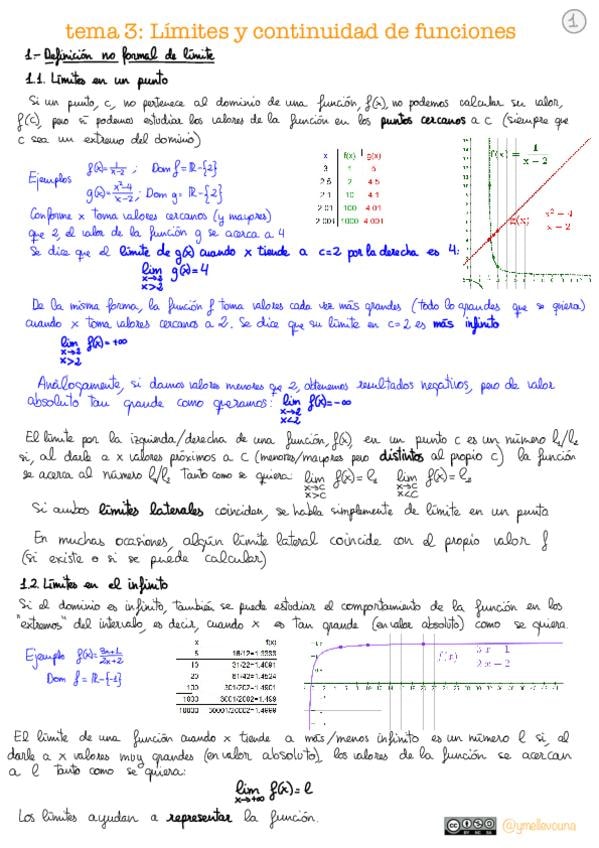 tema 3: Límites y continuidad de funciones
1
1.- Definición no formal de límite
1.1. Límites en un punto
Si un punto, c, no pertenece al dominio de una función, f(x), no podemos calcular su valor,
f(c), pero sí podemos estudiar los valores de la función en los puntos cercanos a c (siempre que
c sea un extremo del dominio)
Ejemplos f(x)=1/(x-2) ; Dom f = ℝ-{2}
g(x)=(x²-4)/(x-2) ; Dom g = ℝ-{2}
x f(x) g(x)
3 1 5
2.5 2 4.5
2.1 10 4.1
2.01 100 4.01
2.001 1000 4.001
f(x) = 1/(x-2)
g(x) (x²-4)/(x-2)
Conforme x toma valores cercanos (y mayores)
que 2, el valor de la función g se acerca a 4
Se dice que el límite de g(x) cuando x tiende a c=2 por la derecha es 4:
lim g(x)=4
x→2
x>2
De la misma forma, la función f toma valores cada vez más grandes (todo lo grandes que se quiera)
cuando x toma valores cercanos a 2. Se dice que su límite en c=2 es más infinito
lim f(x)=+∞
x→2
x>2
Análogamente, si damos valores menores que 2, obtenemos resultados negativos, pero de valor
absoluto tan grande como queramos: lim f(x)=-∞
x→2
x<2
El límite por la izquierda/derecha de una función, f(x), en un punto c es un número l₁/l₂
si, al darle a x valores próximos a c (menores/mayores pero distintos al propio c) la función
se acerca al número l₁/l₂ tanto como se quiera: lim f(x)=l₂ lim f(x)=l₂
x→c x→c
x>c x<c
Si ambos límites laterales coinciden, se habla simplemente de límite en un punto
En muchas ocasiones, algún límite lateral coincide con el propio valor f
(si existe o si se puede calcular)
1.2. Límites en el infinito
Si el dominio es infinito, también se puede estudiar el comportamiento de la función en los
"extremos" del intervalo, es decir, cuando x es tan grande (en valor absoluto) como se quiera.
Ejemplo f(x)=(3x+1)/(2x+2)
Dom f = ℝ-{-1}
x f(x)
5 16/12=1.3333
10 31/22=1.4091
20 61/42=1.4524
100 301/202=1.4901
1000 3001/2002=1.499
10000 30001/20002=1.4999
El límite de una función cuando x tiende a más/menos infinito es un número l si, al
darle a x valores muy grandes (en valor absoluto), los valores de la función se acercan
a l tanto como se quiera:
lim f(x)=l
x→+∞
Los límites ayudan a representar la función.
@ymellevouna